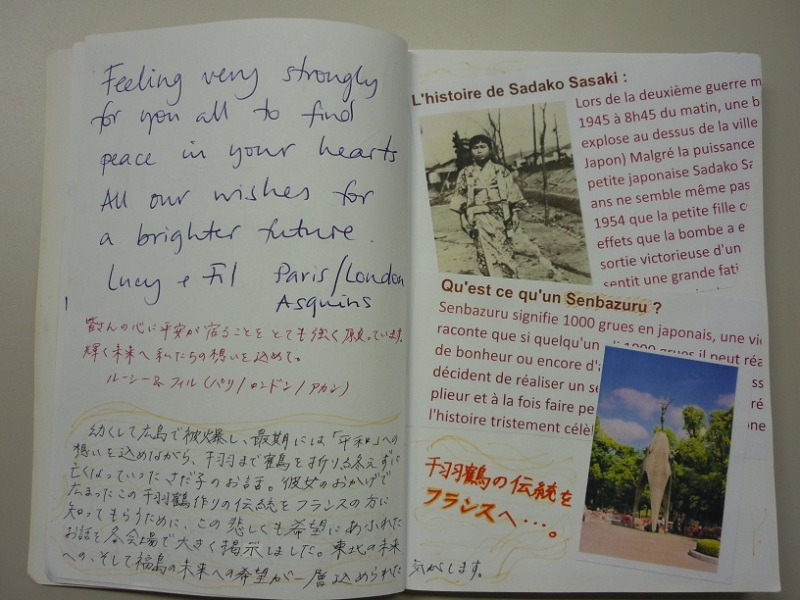 Feeling very strongly
for you all to find
peace in your hearts
All our wishes for
a brighter future.
Lucy & Fil Paris/London
Asquins
皆さんの心に平安が宿ることをとても強く願っています。
輝く未来へ私たちの想いを込めて。
ルーシー&フィル(パリ/ロンドン/アカン)
幼くして広島で被爆し、最期には「平和」への
想いを込めながら、千羽まで鶴を折り終えずに
亡くなっていったさだ子のお話。彼女のおかげで
広まったこの千羽鶴作りの伝統をフランスの方に
知ってもらうために、この悲しくも希望にあふれた
お話を各会場で大きく掲示しました。東北の未来
への、そして福島の未来への希望が一層込められた気がします。
L'histoire de Sadako Sasaki :
Lors de la deuxième guerre m
1945 à 8h45 du matin, une b
explose au dessus de la ville
Japon) Malgré la puissance
petite japonaise Sadako Sa
ans ne semble même pas
1954 que la petite fille c
effets que la bombe a e
sortie victorieuse d'un
sentit une grande fati
Qu'est ce qu'un Senbazuru ?
Senbazuru signifie 1000 grues en japonais, une vi
raconte que si quelqu'un 1000 grues il peut réa
de bonheur ou encore d'a
décident de réaliser un se
plieur et à la fois faire pe
l'histoire tristement célè
千羽鶴の伝統を
フランスへ…。